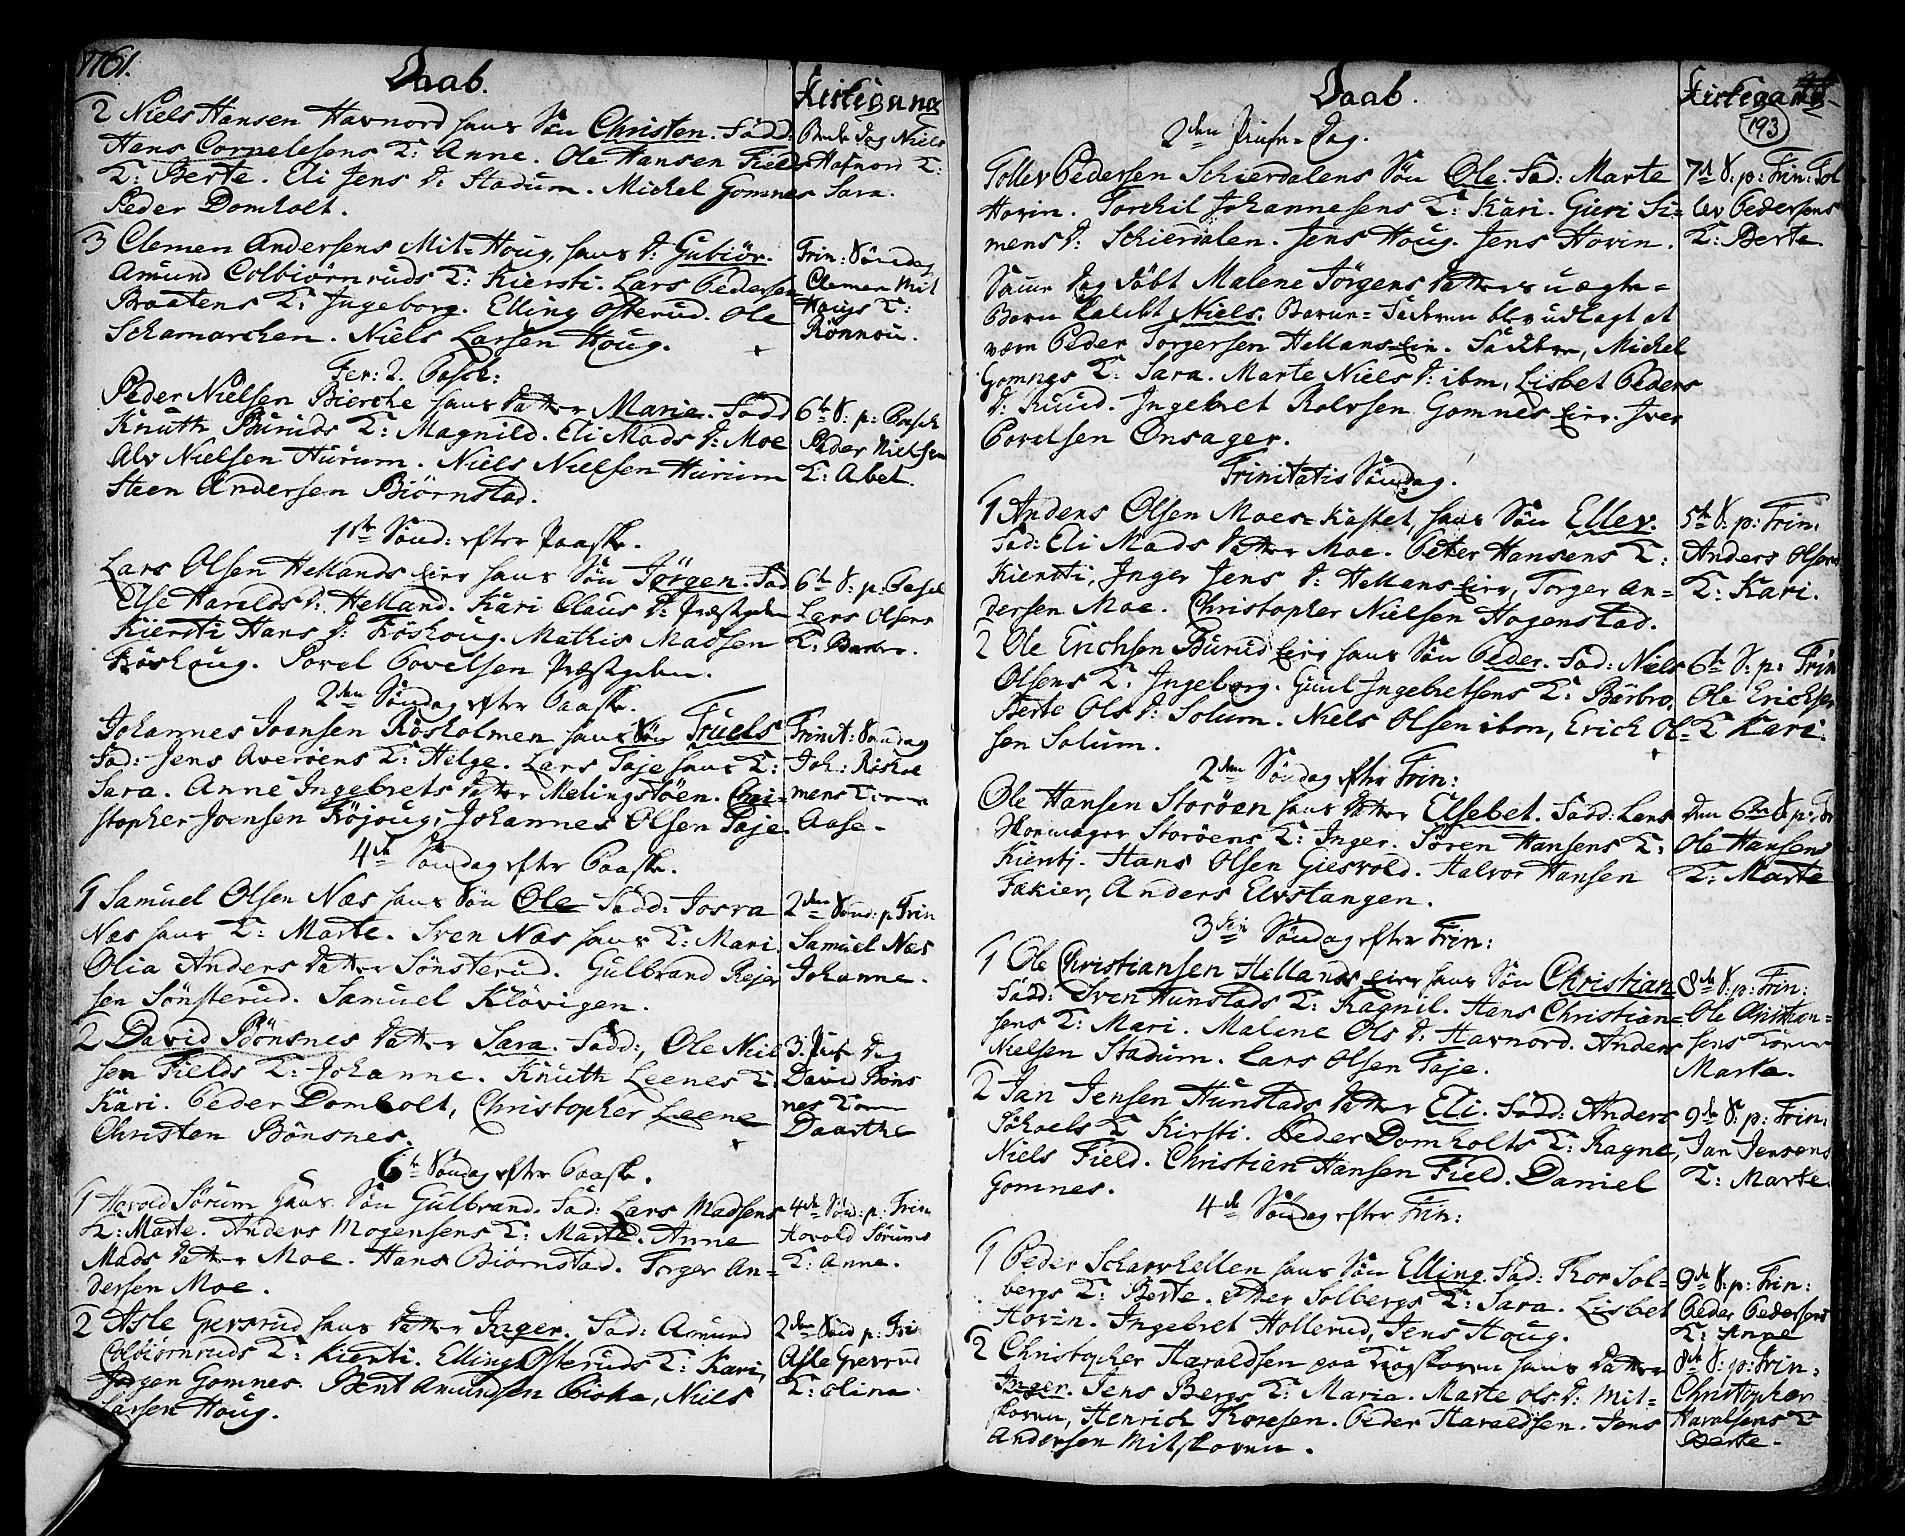 1761.
Daab.
Kirkegang
2 Niels Hansen Havnord hans Søn Christen. Fadd:
Hans Cornelesens K: Anne. Ole Hansen Fields
K: Berte. Eli Jens D: Stadum. Michel Gomnes
Peder Domholt.
Bede Dag Niels
Hafnord K:
Sara.
3 Clemen Andersens Mit-Houg, hans D: Gubiør.
Amund Colbiørnruds K: Kiersti. Lars Pedersen
Braatens K: Ingeborg. Elling Osterud. Ole
Schamarchen. Niels Larsen Houg.
Trin: Søndag
Clemen Mit
Hougs K:
Rønnou.
Fer: 2. Pasch:
Peder Nielsen Bierche hans Datter Marie. Fadd
Knuth Buruds K: Magnild. Eli Mads D: Moe
Alv Nielsen Hurum. Niels Nielsen Hurum
Steen Andersen Biørnstad.
6te S: p: Pasch
Peder Nielsen
K: Abet.
1ste Sønd: efter Paaske.
Lars Olsen Hellands Eie hans Søn Jørgen. Fad
Else Haralds D: Helland. Kari Claus D: Præstgden
Kiersti Hans D: Røshoug. Mathis Madsen
Røshoug. Povel Povelsen Præstgden.
6te S: p: Pasch
Lars Olsens
K: Barbro.
2den Søndag efter Paaske.
Johannes Joensen Røsholmen hans Søn Truels
Fad: Jens Averøens K: Helge. Lars Taje hans K:
Sara. Anne Ingebrets Datter Melingstøen. Chri-
stopher Joensen Røjoug, Johannes Olsen Taje.
Trinit: Søndag
Joh: Røshol
mens Kone
Aase.
4de Søndag efter Paaske.
1 Samuel Olsen Næs hans Søn Ole Fadd: Josva
Næs hans K: Marte. Sven Næs hans K: Mari
Olia Anders Datter Sønsterud. Gulbrand Rejer
sen Sønsterud. Samuel Kløvigen.
2den Sønd: p: Trin
Samuel Næs
Johanne.
2 David Bønsnes Datter Sara. Fadd:, Ole Niel
sen Fields K: Johanne. Knuth Leenes K:
Kari. Peder Domholt, Christopher Leene
Christen Bønsnes.
3. Juf Dag
David Bøns
nes Kone
Daarthe
6te Søndag efter Paaske.
1 Harold Sørum hans Søn Gulbrand. Fad: Lars Madsens
K: Marte. Anders Mogensens K: Marte. Anne
Mads Datter Moe. Hans Biørnstad. Torger An-
dersen Moe.
4de Sønd: p: Trin
Harold Sørums
K: Anne.
2 Asle Gresrud hans Datter Inger. Fad: Amund
Colbiørnruds K: Kiersti. Elling Osteruds K: Kari,
Jørgen Gomnes. Bent Amundsen, Niels
Larsen Houg.
2den Sønd p: Trin
Asle Gresrud
K: Olina.
Daab.
Kirkegang
193
2den Pinse-Dag.
Tollev Pedersen Schierdalens Søn Ole. Fad: Marte
Hovin. Torchil Johannesens K: Kari. Guri Si-
mens D: Schierdalen. Jens Houg. Jens Hovin.
7de S: p: Trin: Tol
lev Pedersens
K: Berte
Samme Dag døbt Malene Jørgens Datters uægte-
Barn kaldet Niels. Barne-Faderen blev udlagt at
være Peder Torgersen Hellans-Eie. Faddere, Michel
Gomnes K: Sara. Marte Niels D: ibm, Lisbet Peders
D: Ruud. Ingebret Rolvsen Gomnes Eie. Iver
Povelsen Onsager.
Trinitatis Søndag.
1 Anders Olsen Moes-Kastet, hans Søn Ellev.
Fad: Eli Mads Datter Moe. Peter Hansens K:
Kiersti, Inger Jens D: Hellans Eie, Torger An-
dersen Moe. Christopher Nielsen Hogenstad.
5te S: p: Trin:
Anders Olsens
K: Kari.
2 Ole Erichsen Burud Eie hans Søn Peder. Fad: Niels
Olsens K: Ingeborg. Guul Ingebretsens K: Barbro,
Berte Ols D: Solum. Niels Olsen ibm, Erich Ol-
sen Solum.
6te S: p: Trin
Ole Erichsen
K Kari.
2den Søndag efter Trin:
Ole Hansen Storøen hans Datter Elsebet. Fadd: Lars
Skomager Storøens K: Inger. Søren Hansens K:
Kiersti. Hans Olsen Giesvold. Halvor Hansen
Fækier, Anders Elvstangen.
den 6te S: p: Tr
Ole Hansens
K: Marte
3die Søndag efter Trin:
1 Ole Christiansen Hellands Eie hans Søn Christian
Fadd: Sven Hunstads K: Ragnil. Hans Christian-
sens K: Mari. Malene Ols D: Havnord. Anders
Nielsen Stadum. Lars Olsen Taje.
8de S: p: Trin:
Ole Christian-
sens Kone
Marta.
2 Jan Jensen Hunstads Datter Eli. Fadd: Anders
Søhoels K Kirsti. Peder Domholts K: Ragne,
Niels Field. Christian Hansen Field. Daniel
Gomnes.
9de S: p: Trin:
Jan Jensens
K: Marte.
4de Søndag efter Trin:
1 Peder Scharvhellen hans Søn Elling. Fad: Thor Sol-
bergs K: Berte. Peder Solbergs K: Sara. Lisbet
Hovin. Ingebret Hollerud, Jens Houg.
9de S: p: Trin:
Peder Pedersens
K: Anne
2 Christopher Haraldsen paa Krogskoven hans Datter
Inger. Jens Bergs K: Maria. Marte Ols D: Mit-
skoven, Henrich Thoresen. Peder Haraldsen. Jens
Andersen Mitskoven.
8de S: p: Trin:
Christopher
Haralsens K
Berte.